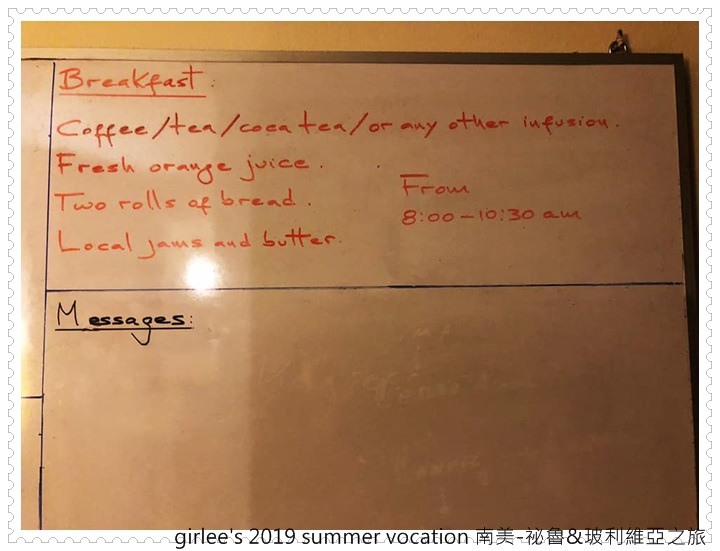 Breakfast:
Coffee/tea/coca tea/or any other infusion.
Fresh orange juice.
Two rolls of bread.
Local jams and butter.
From
8:00-10:30 am
Messages:
girlee's 2019 summer vocation 南美-祕魯&玻利維亞之旅